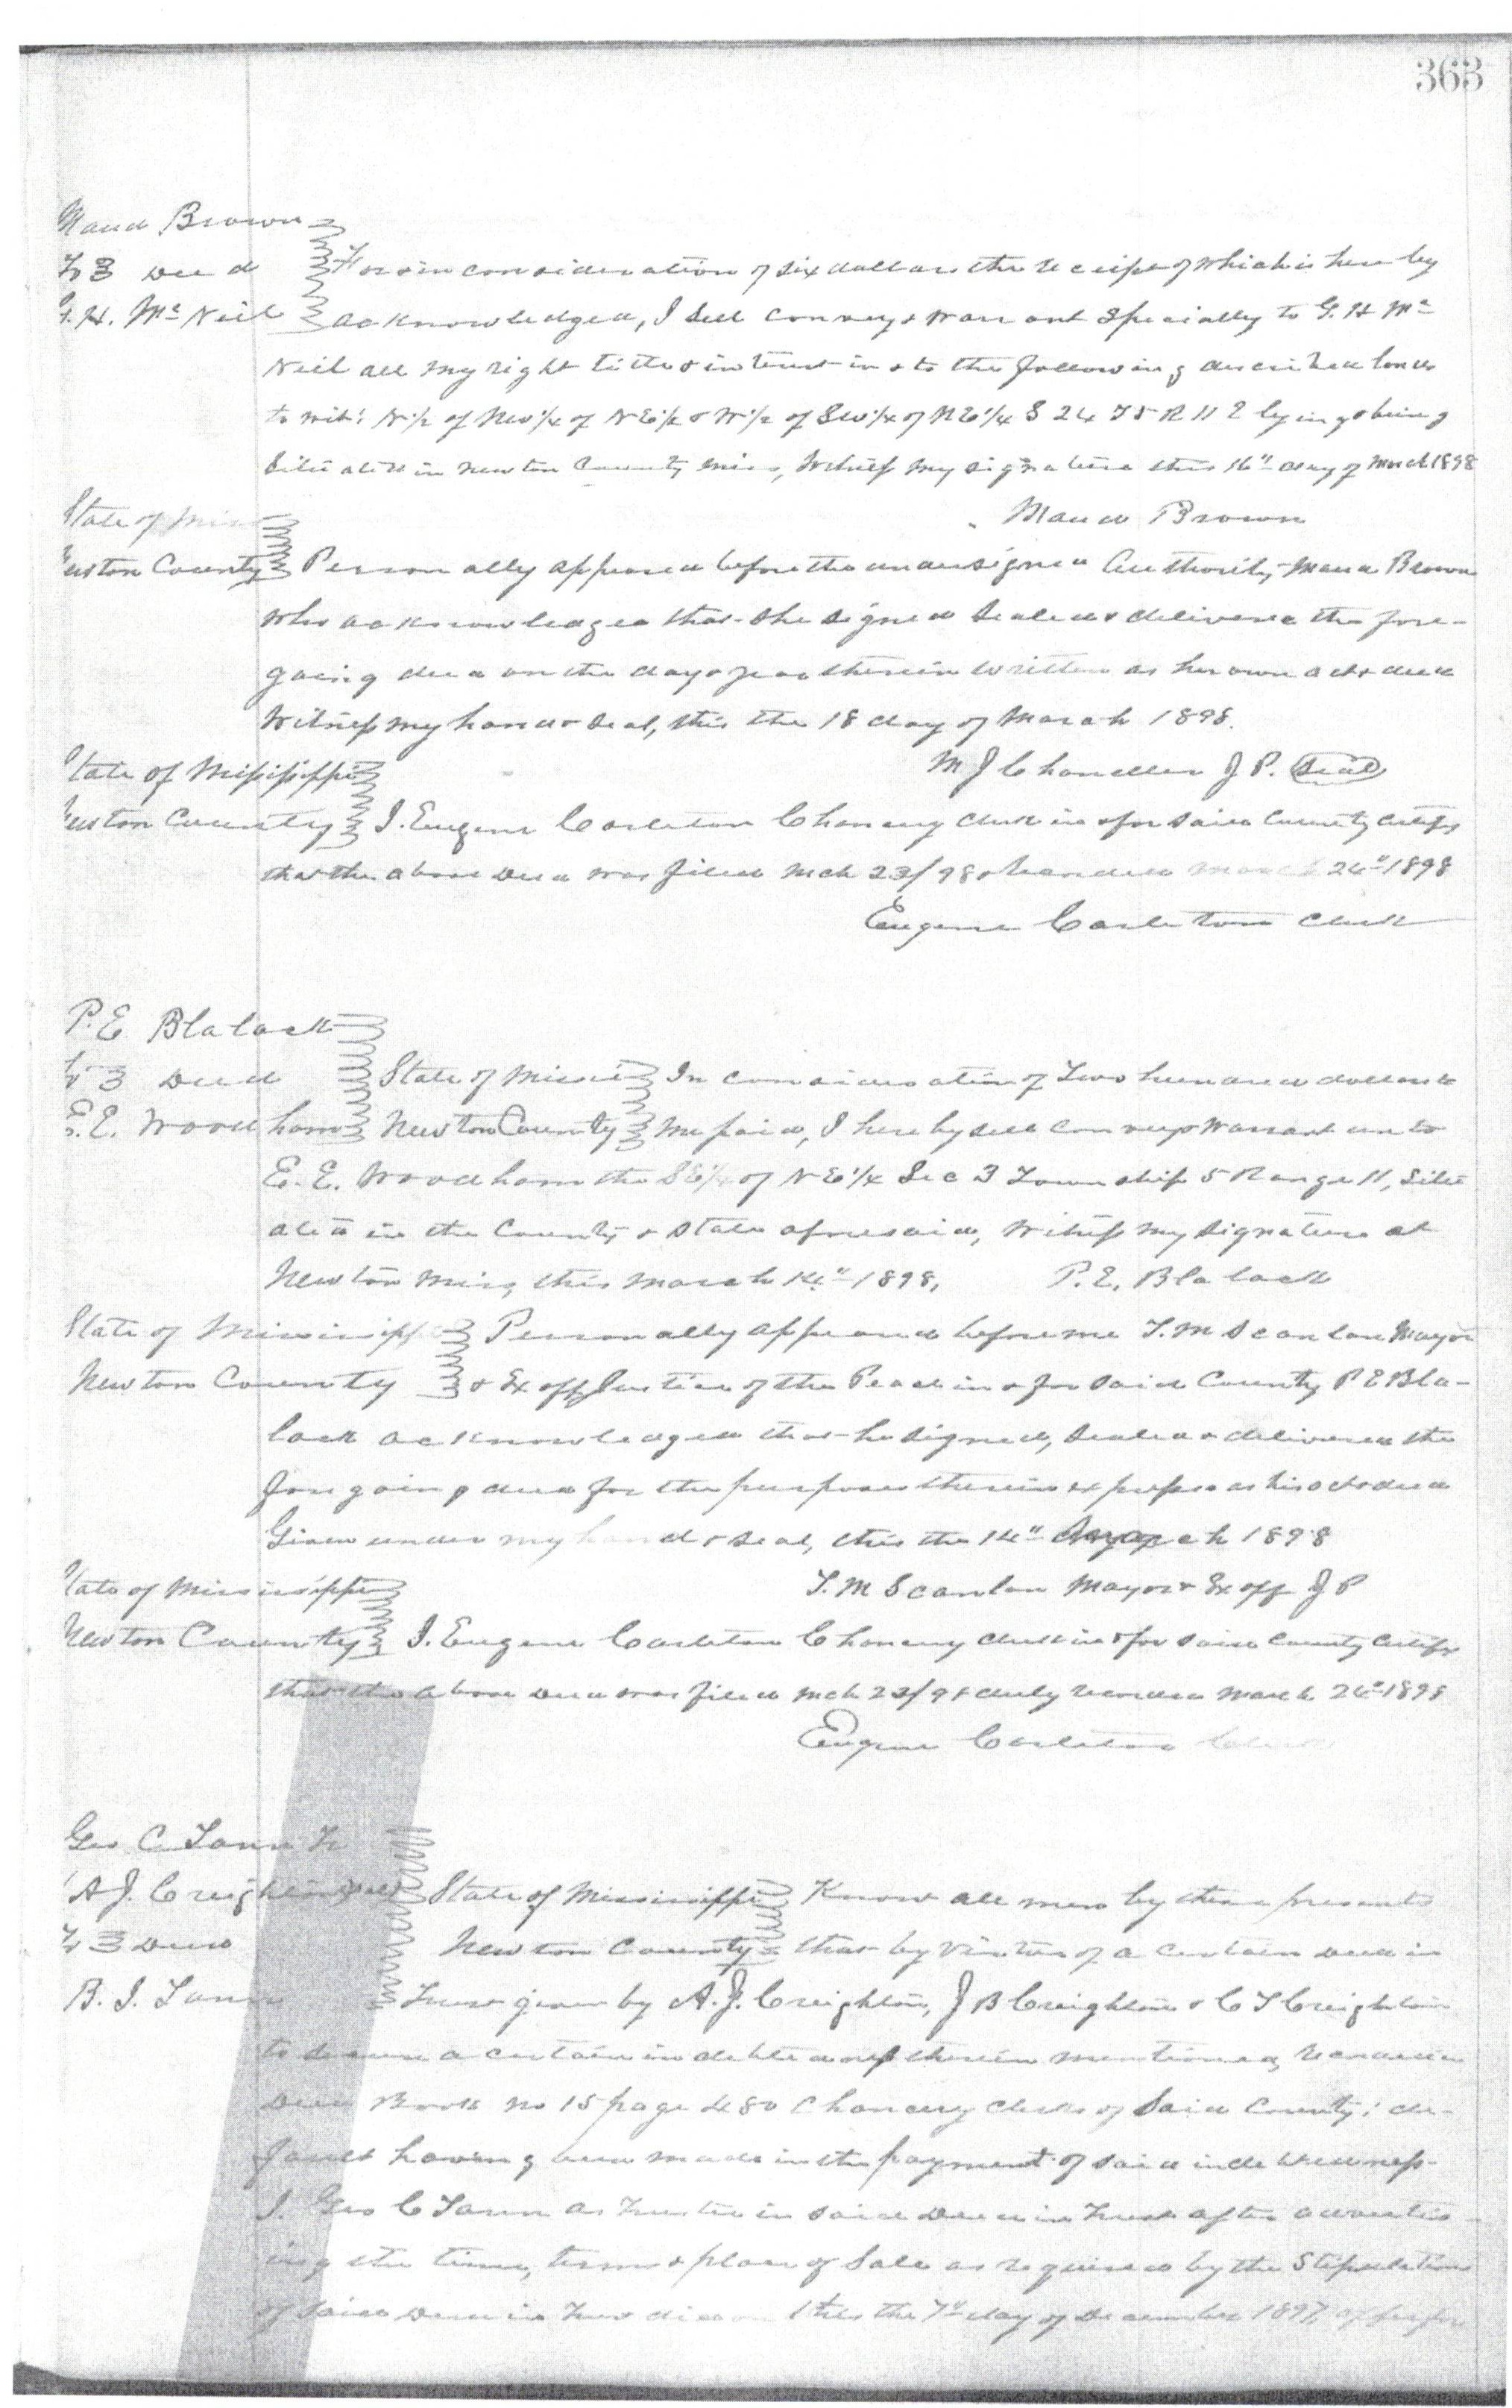 363
Maud Brown
To 3 Deed For & in consideration of six dollars the receipt of which is hereby
G. H. McNeil acknowledged, I sell convey & warrant specially to G. H Mc
Neil all my right title & interest in & to the following described lands
to wit: N 1/2 of NW 1/4 of NE 1/4 & W 1/2 of SW 1/4 of NE 1/4 S 24 T 5 R 11 E lying & being
situated in Newton County Miss, Witness my signature this 16" day of March 1898
State of Miss Maud Brown
Newton County Personally appeared before the undersigned Authority Maud Brown
who acknowledged that she signed sealed & delivered the fore-
going deed on the day & year therein written as her own act & deed
Witness my hand & seal, this the 18 day of March 1898.
State of Mississippi M J Chandler J P. Seal
Newton County I. Eugene Carleton Chancery Clerk in & for said County certify
that the above Deed was filed Mch 23/98 & Recorded March 24" 1898
Eugene Carleton Clerk
P. E Blalack
To 3 Deed State of Missi In consideration of Two hundred dollars to
E. E. Woodham Newton County me paid, I hereby sell convey & warrant unto
E. E. Woodham the SE 1/4 of NE 1/4 Sec 3 Township 5 Range 11, situ
ated in the County & State aforesaid, Witness my signature at
Newton Miss, this March 14" 1898, P. E. Blalack
State of Mississippi Personally appeared before me T. M Scanlan Mayor
Newton County & Ex off Justice of the Peace in & for said County P E Bla-
lack acknowledged that he signed, sealed & delivered the
foregoing deed for the purposes therein express as his act & deed
Given under my hand & seal, this the 14" March 1898
State of Mississippi T. M Scanlan Mayor & Ex off J P
Newton County I. Eugene Carleton Chancery Clerk in & for said County certify
that the above Deed was filed Mch 23/98 duly Recorded March 24" 1898
Eugene Carleton Clerk
Geo C Tann Tr
A J. Creighton State of Mississippi Know all men by these presents
To 3 Deed Newton County that by virtue of a certain Deed in
B. J. Tann Trust given by A. J. Creighton, J B Creighton & C T Creighton
to secure a certain indebtedness therein mentioned, Recorded in
Deed Book No 15 page 480 Chancery Clerks of said County: de-
fault having been made in the payment of said indebtedness
I. Geo C Tann as Trustee in said Deed in Trust after advertis-
ing the time, terms & place of Sale as required by the Stipulations
of said Deed in Trust did on this the 7" day of December 1897,